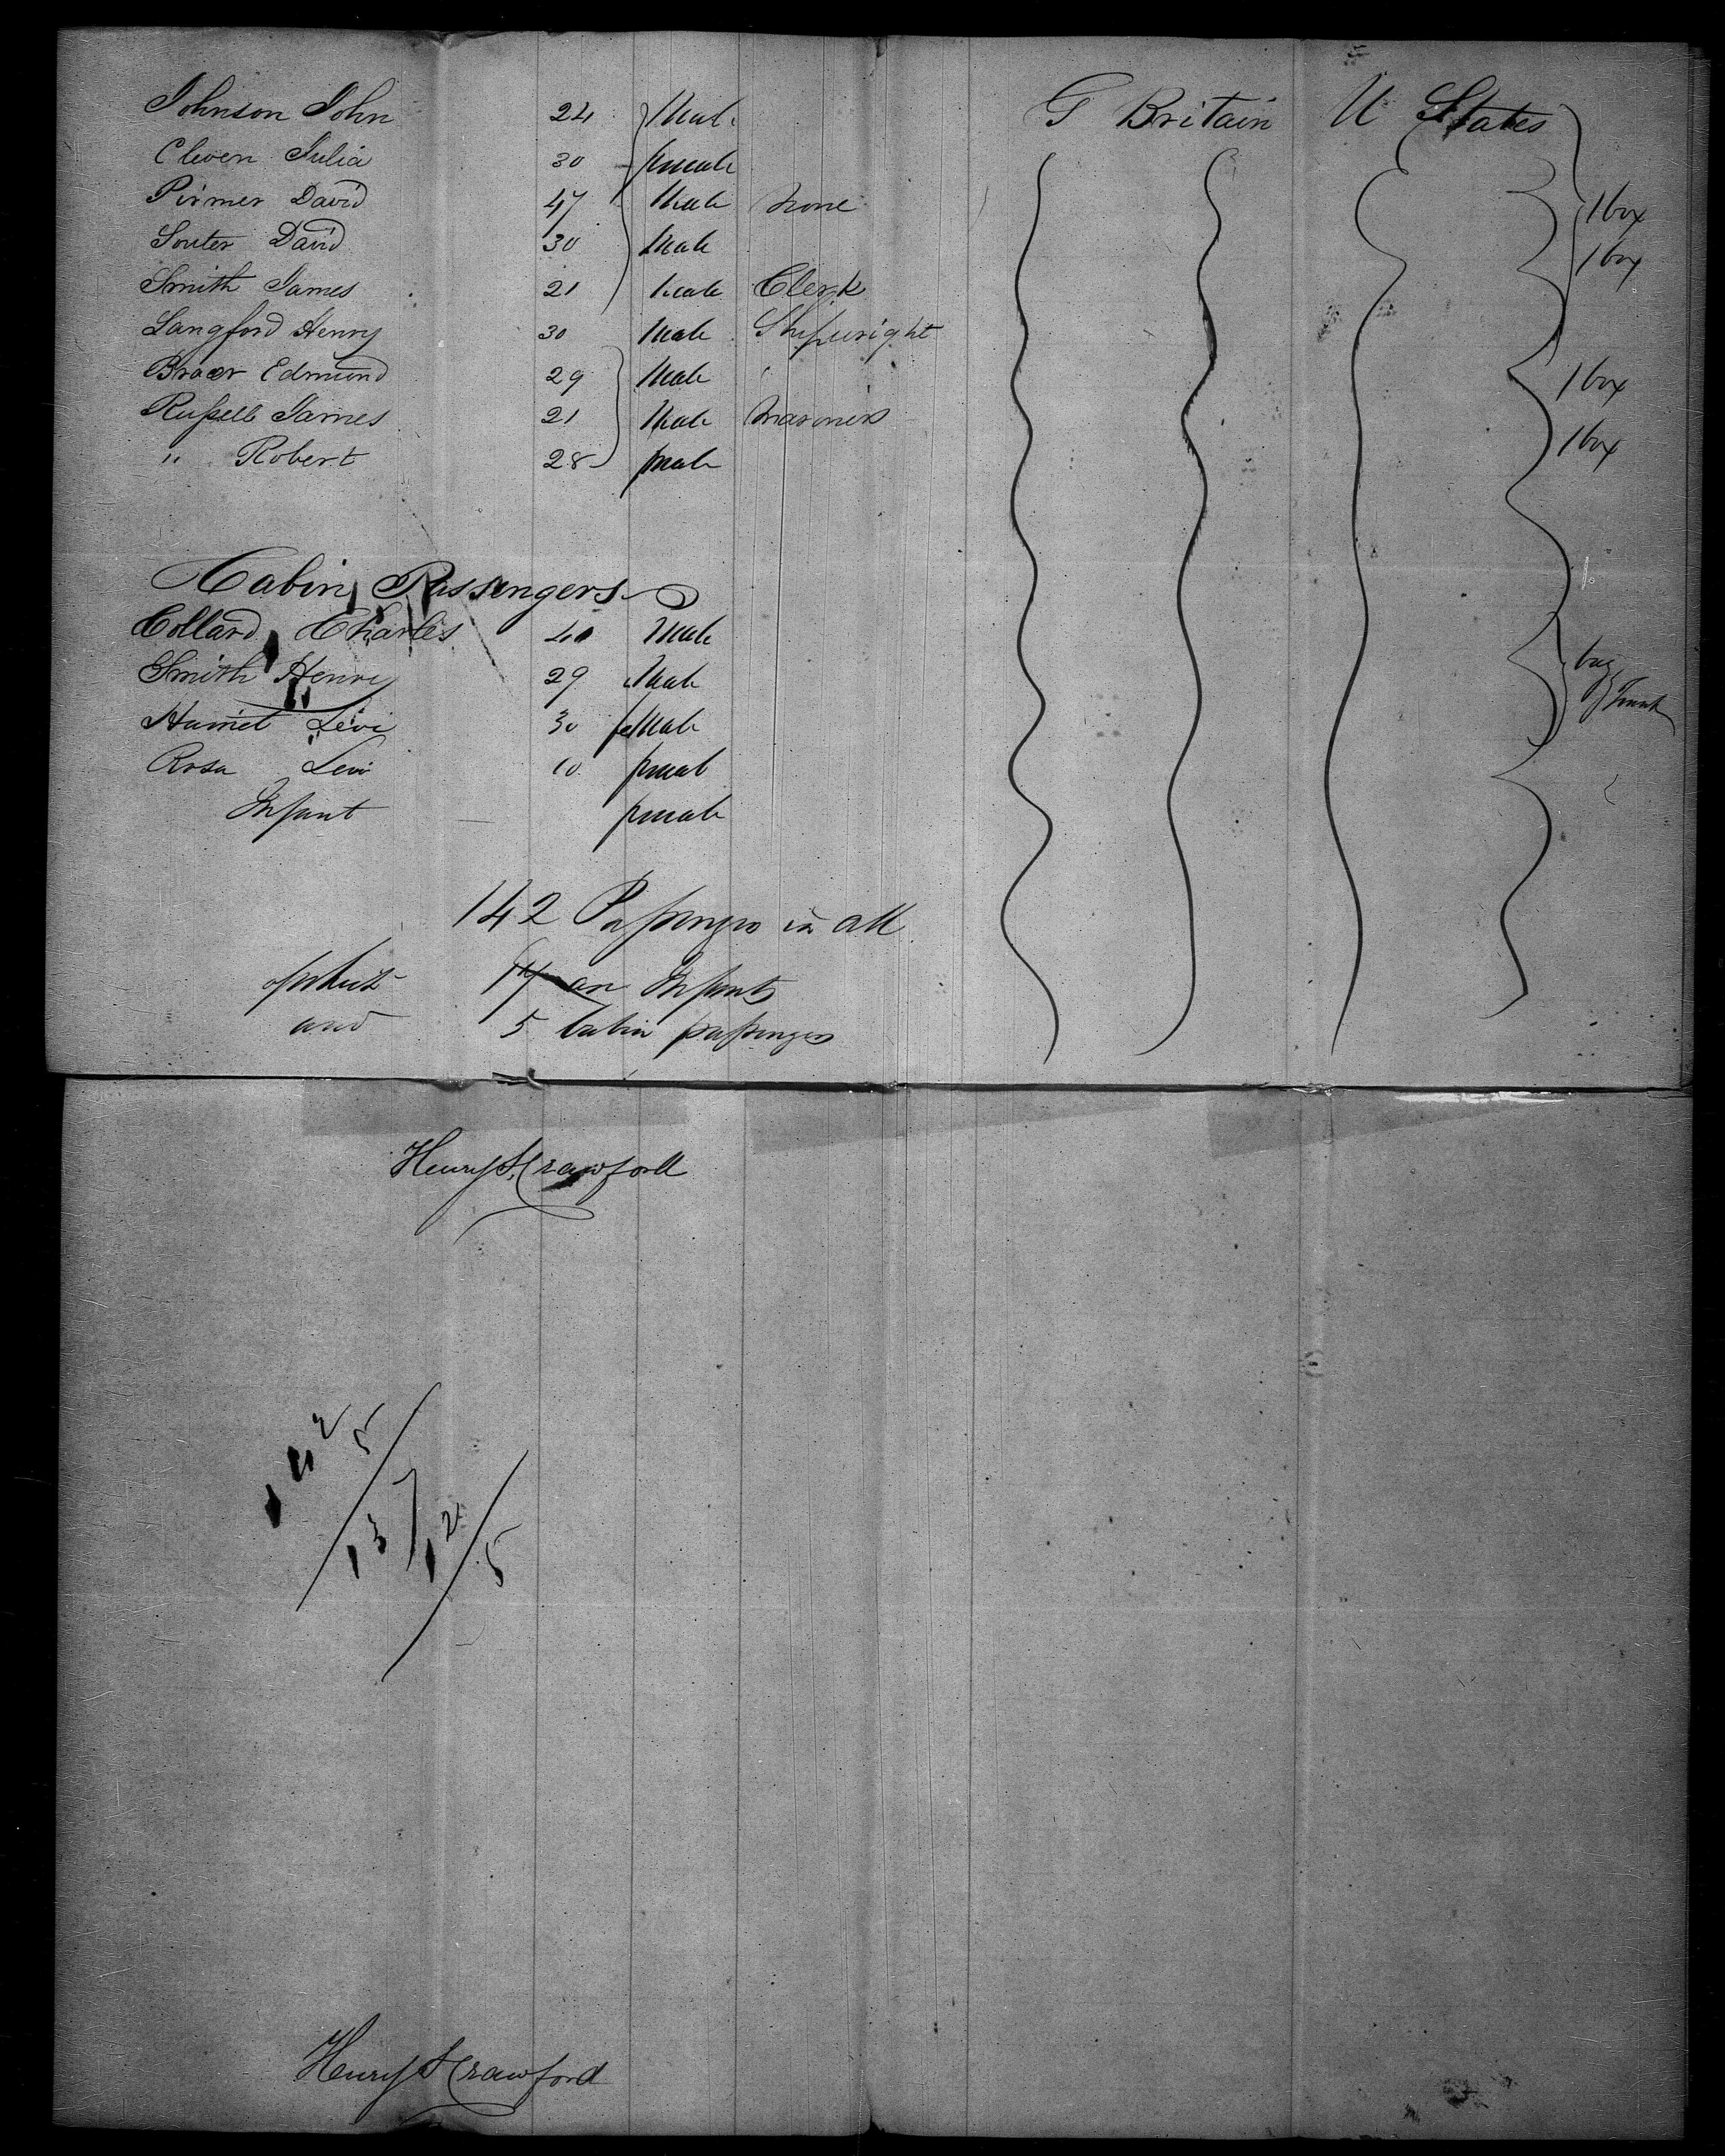 Johnson John 24 Male G Britain U States
Cleven Julia 30 female
Pirmer David 47 Male None 1 box
Souter David 30 Male 1 box
Smith James 21 Male Clerk
Langford Henry 30 Male Shipwright
Edmund 29 Male 1 box
Russell James 21 Male Mariners 1 box
" Robert 28 Male
Cabin Passengers
Collard Charles 40 Male
Smith Henry 29 Male bag
Harriet Levi 30 feMale Trunk
Rosa Levi 10 female
Infant female
142 Passengers in all
of which 14 are Infants
and 5 Cabin passengers
Henry S. Crawford
142
5
137
12
5
Henry S Crawford